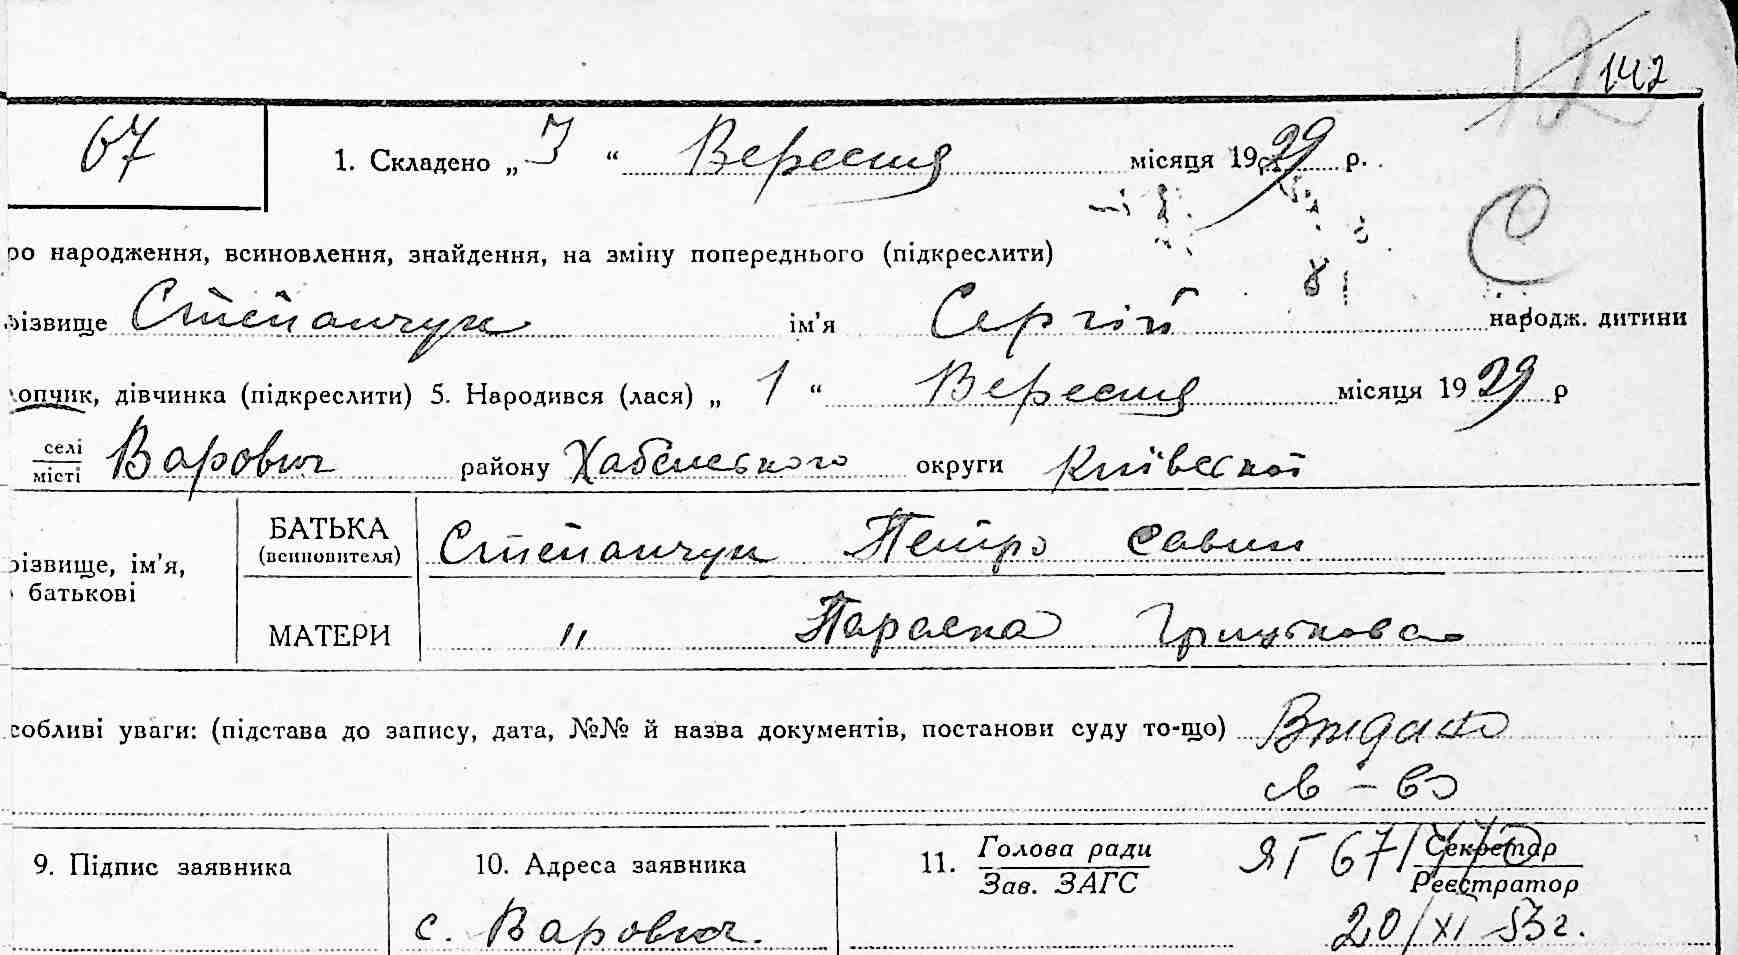 142
67 1. Складено „ 3 “ Вересня місяця 1929 р.
ро народження, всиновлення, знайдення, на зміну попереднього (підкреслити)
різвище Степанчук ім'я Сергій народж. дитини
опчик, дівчинка (підкреслити) 5. Народився (лася) „ 1 “ Вересня місяця 1929 р
селі
місті Варович району Хабенського округи Київської
БАТЬКА
(всиновителя) Степанчук Петро Савин
різвище, ім'я,
батькові
МАТЕРИ " Параска Грицькова
собливі уваги: (підстава до запису, дата, №№ й назва документів, постанови суду то-що) Видано
св-во
9. Підпис заявника 10. Адреса заявника 11. Голова ради
Зав. ЗАГС ЯГ Секретар
Реєстратор
с. Варович. 20/XI 53 г.